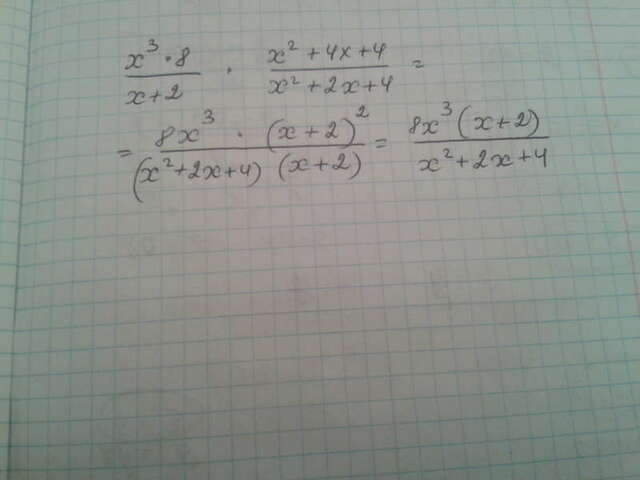 x³ · 8 / x+2 · x² + 4x + 4 / x² + 2x + 4 =
= 8x³ · (x + 2)² / (x² + 2x + 4) (x + 2) = 8x³ (x + 2) / x² + 2x + 4